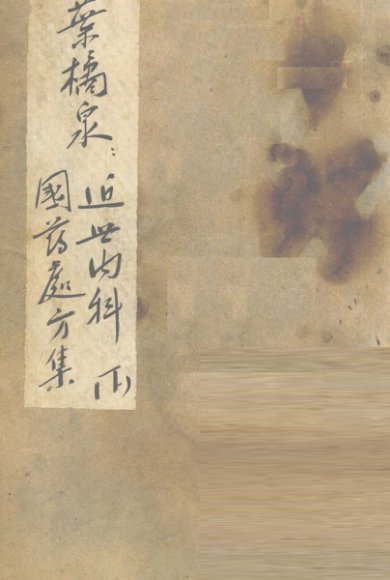 葉橘泉:
近世内科
國药處方集
(下)